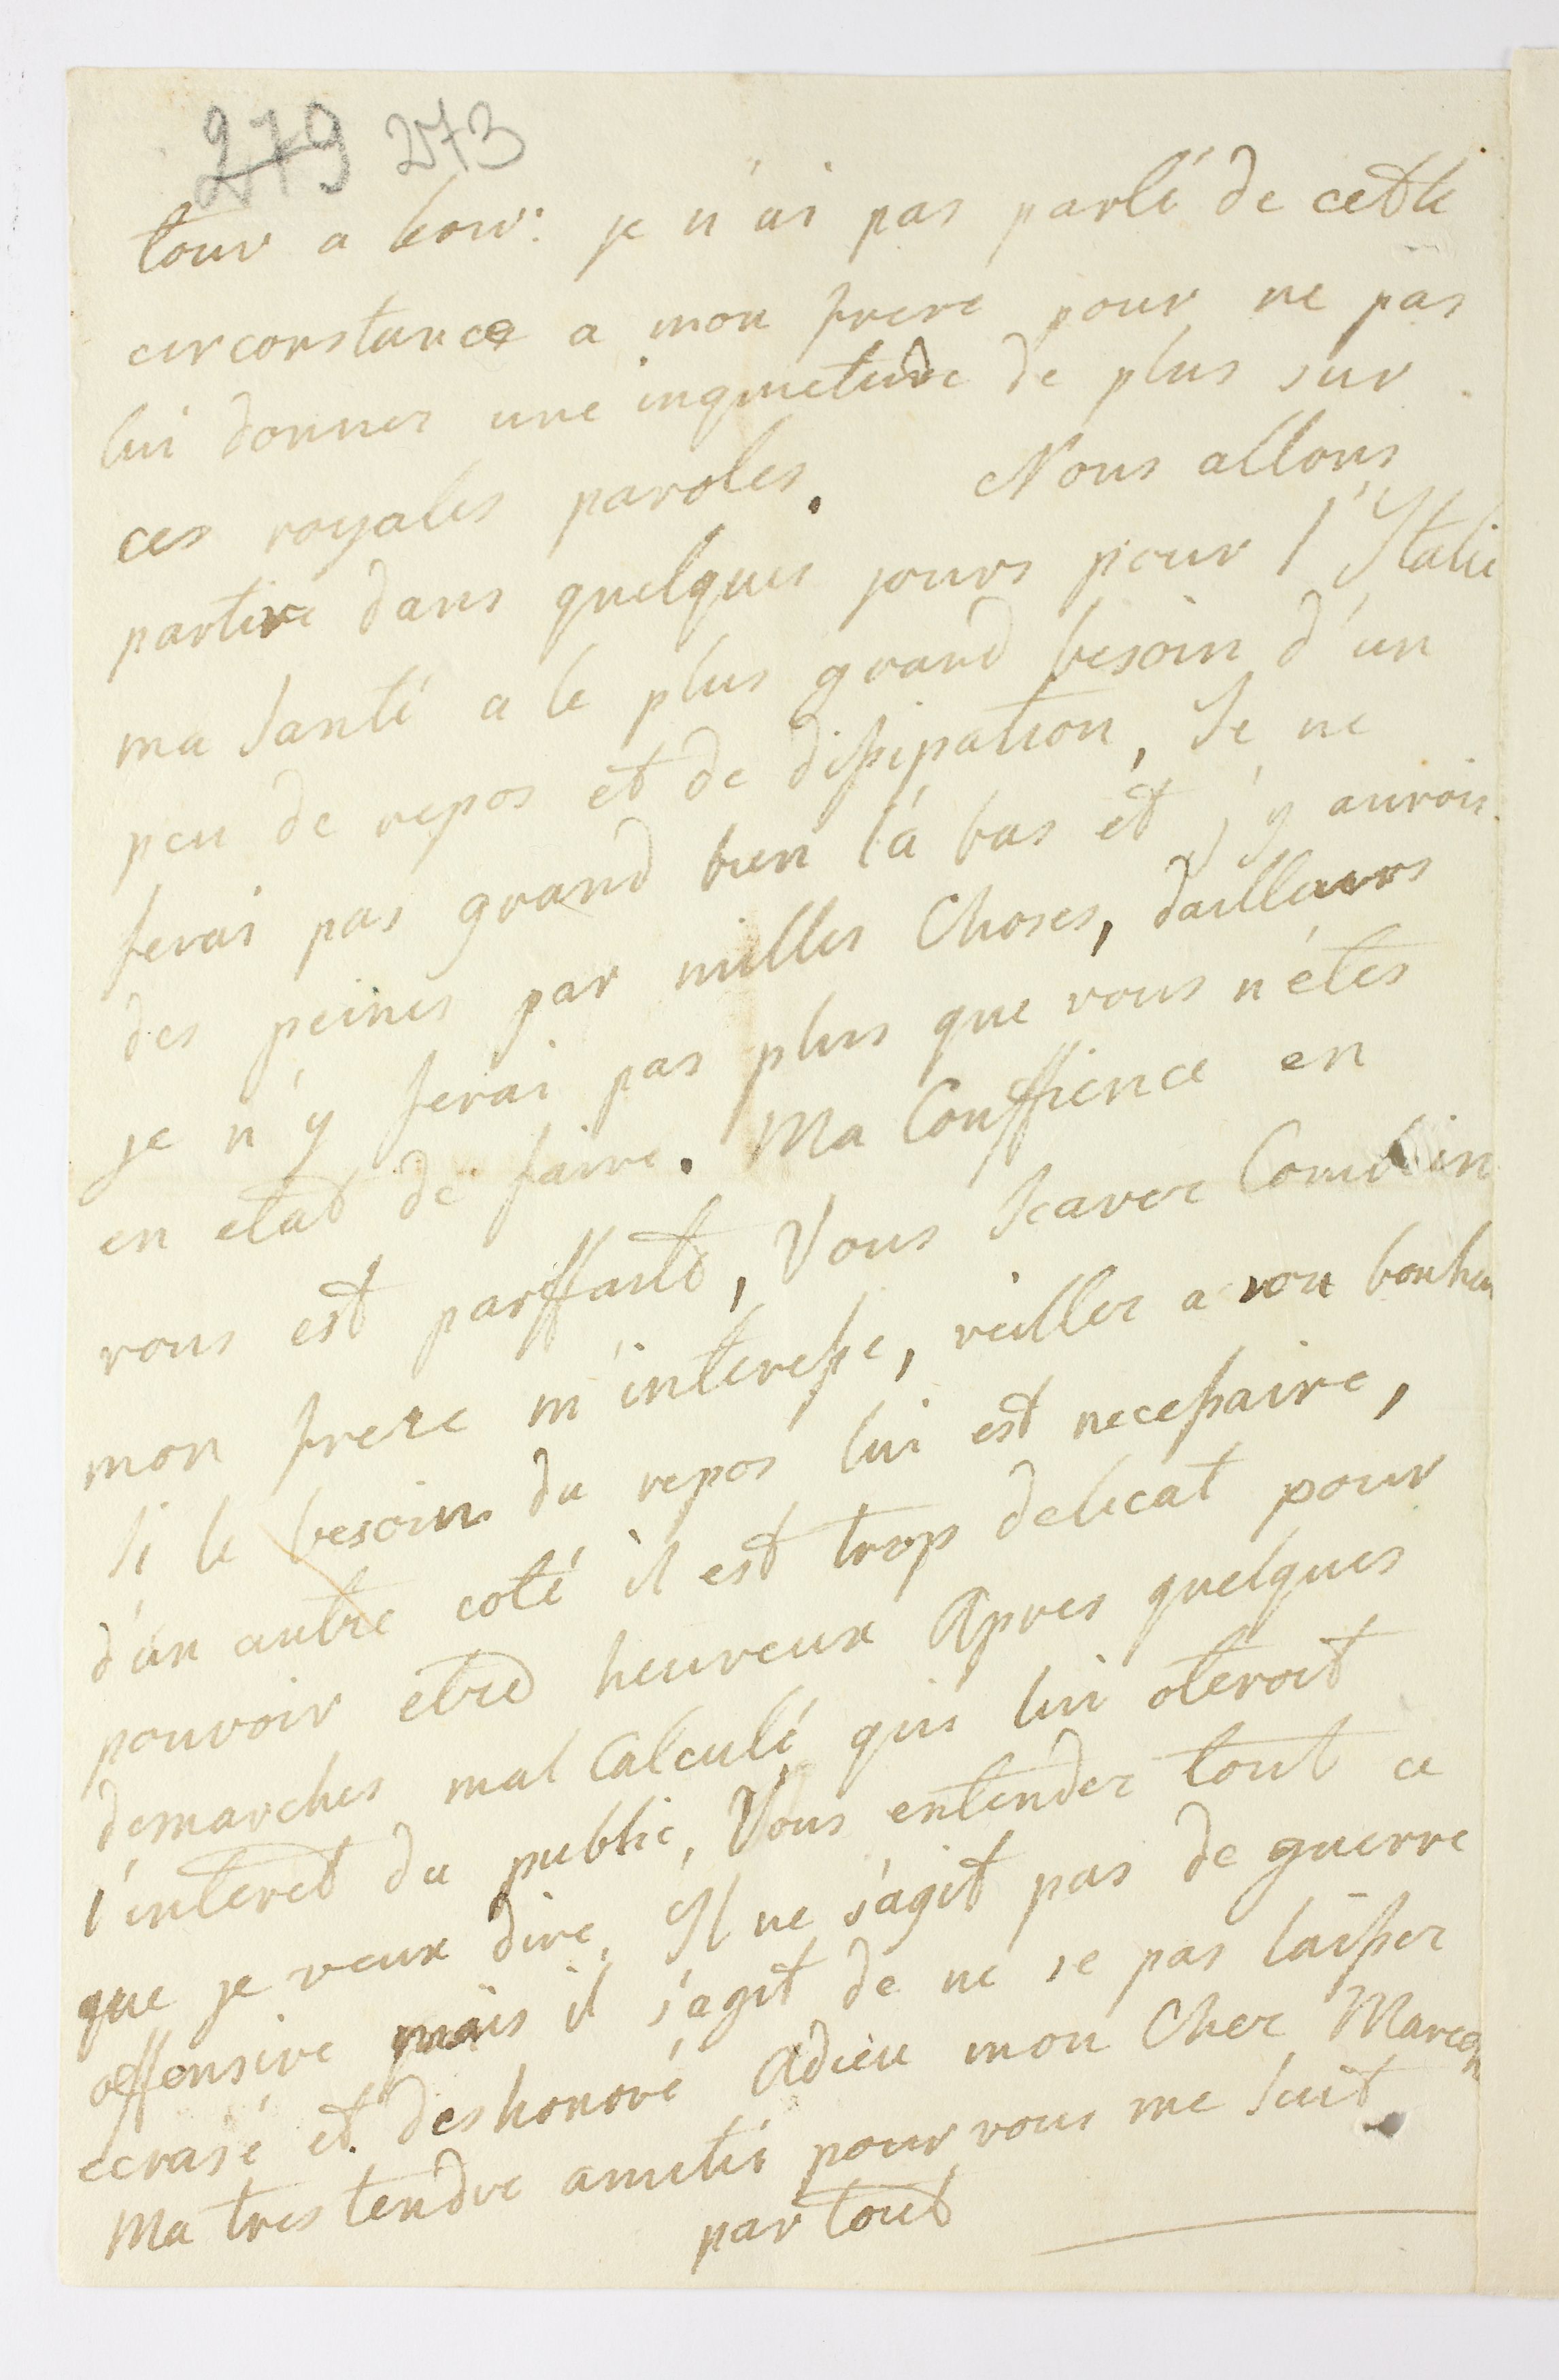 279 273
tour a tour: je n'ai pas parlé de cette
circonstance a mon frere pour ne pas
lui donner une inquietude de plus sur
ces royales paroles. Nous allons
partire dans quelques jours pour l'Italie
ma santé a le plus grand besoin d'un
peu de repos et de dissipation, Je ne
ferai pas grand bien là bas et j'y aurois
des peines par milles Choses, dailleurs
je n'y ferai pas plus que vous n'étes
en etat de faire. Ma Conffience en
vous est parffaite, Vous scavez Combien
mon frere m'interesse, veillez a son bonheur
si le besoin du repos lui est necessaire,
d'un autre coté il est trop delicat pour
pouvoir etre heureux Apres quelques
demarches mal Calculé qui lui oteroit
l'interet du public, Vous entendez tout ce
que je veux dire, Il ne s'agit pas de guerre
offensive mais il s'agit de ne se pas laisser
ecrasé et deshonoré Adieu mon Cher
Ma tres tendre amitié pour vous me suit
par tout